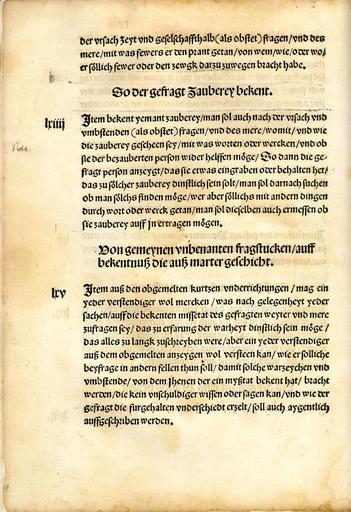 der vrsach zeyt vnd geselschaffthalb (als obstet) fragen/vnd des
mere/mit was fewers er den prant getan/von wem/wie/oder wo/
er söllich fewer oder den zewgk darzu zuwegen bracht habe.
So der gefragt Zauberey bekent.
lxiiij
Item bekent yemant zauberey/man sol auch nach der vrsach vnd
vmbstenden (als obstet) fragen/vnd des mere/womit/vnd wie
die zauberey gescheen sey/mit was worten oder wercken/vnd ob
sie der bezauberten person wider helffen möge/So dann die ge-
fragt person anzeygt/das sie etwas eingraben oder behalten het/
das zu sölcher zauberey dinstlich sein solt/man sol darnach suchen
ob man sölchs finden möge/wer aber söllichs mit andern dingen
durch wort oder werck getan/man sol dieselben auch ermessen ob
sie zauberey auff ir ertragen mögen.
Von gemeynen vnbenanten fragstucken/auff
bekentnuß die auß marter geschicht.
lxv
Item auß den obgemelten kurtzen vnderrichtungen/mag ein
yeder verstendiger wol mercken/was nach gelegenheyt yeder
sachen/auff die bekenten missetat des gefragten weyter vnd mere
zufragen sey/das zu erfarung der warheyt dinstlich sein möge/
das alles zu langk zuschreyben were/aber ein yeder verstendiger
auß dem obgemelten anzeygen wol versteen kan/wie er solliche
beyfrage in andern fellen thun soll/damit solche warzeychen vnd
vmbstende/von dem Jhenen der ein myßtat bekent hat/bracht
werden/die kein vnschuldiger wissen oder sagen kan/vnd wie der
gefragt die fürgehalten vnderschiedt erzelt/soll auch aygentlich
auffgeschriben werden.